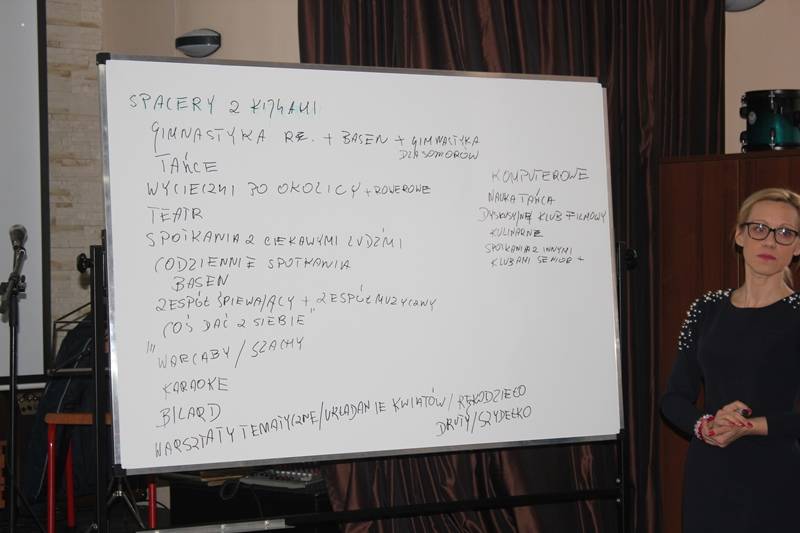 SPACERY Z KIJKAMI
GIMNASTYKA RE. + BASEN + GIMNASTYKA
DLA SOMORÓW
TAŃCE
WYCIECZKI PO OKOLICY + ROWEROWE
TEATR
SPOTKANIA Z CIEKAWYMI LUDŹMI
CODZIENNIE SPOTKANIA
BASEN
ZESPÓŁ ŚPIEWAJĄCY + ZESPÓŁ MUZYCZNY
"COŚ DAĆ Z SIEBIE"
WARCABY / SZACHY
KARAOKE
BILARD
WARSZTATY TEMATYCZNE/UKŁADANIE KWIATÓW/ RĘKODZIEŁO
DRUTY/SZYDEŁKO
KOMPUTEROWE
NAUKA TAŃCA
DYSKUSYJNE KLUB FILMOWY
KULINARNE
SPOTKANIA Z INNYMI
KLUBAMI SENIOR +